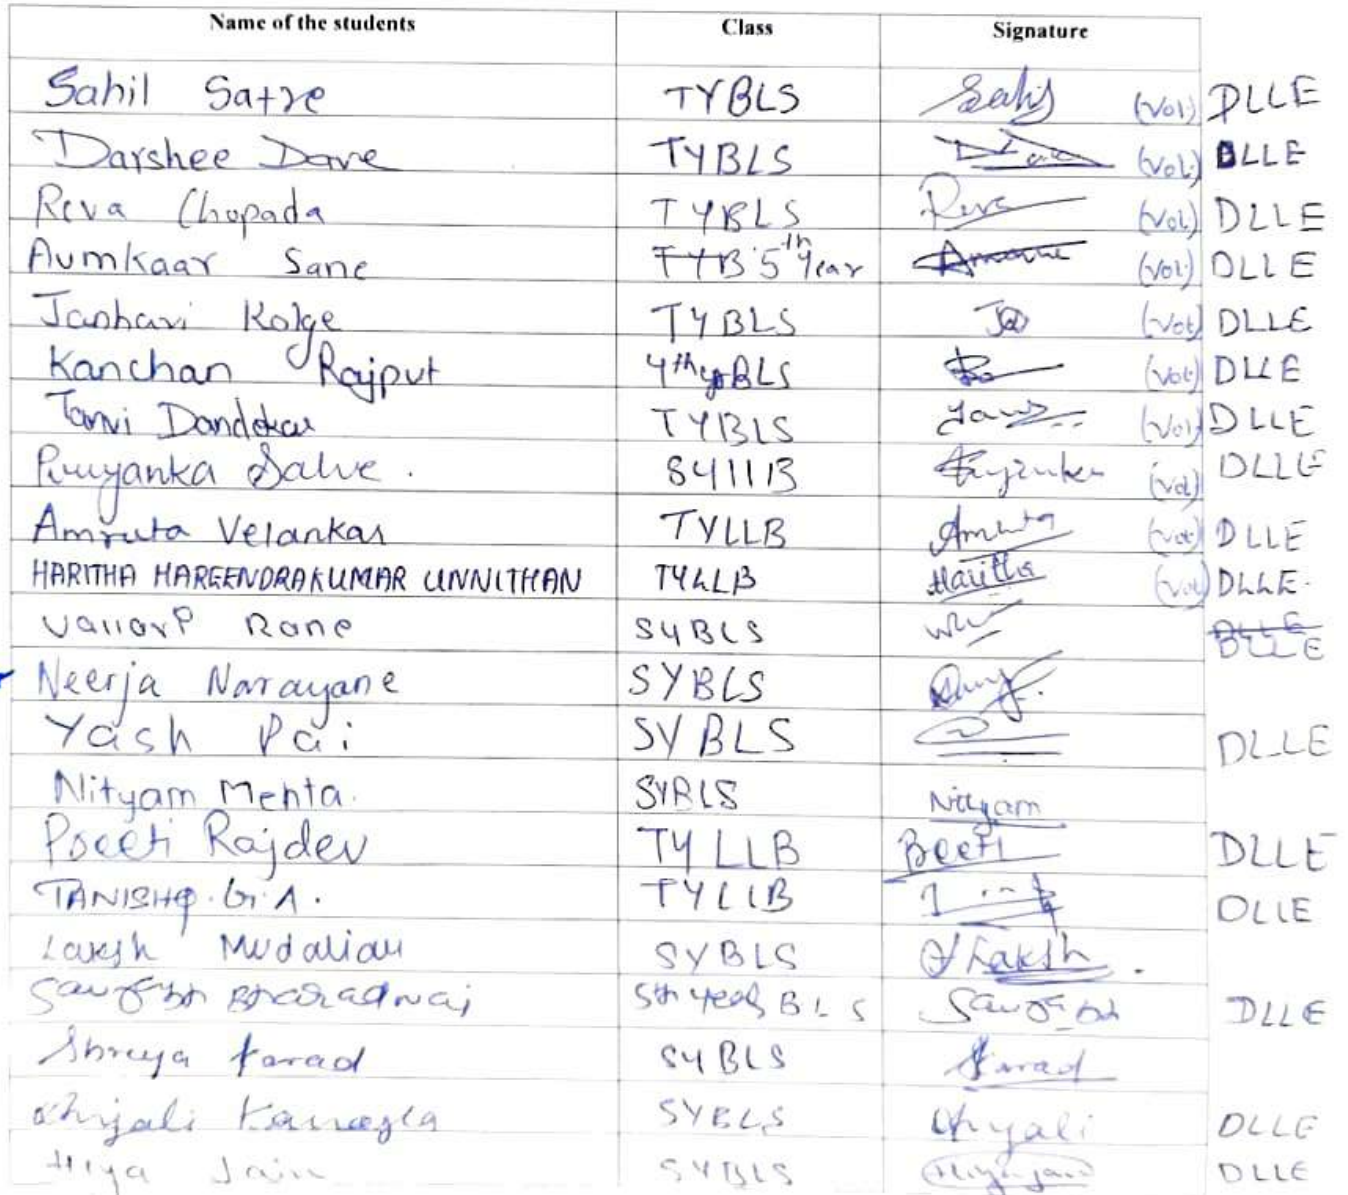 Name of the students Class Signature
Sahil Satre TYBLS Sahil (Vol:) DLLE
Darshee Dave TYBLS (Vol:) DLLE
Reva Chopada TYBLS Reva (Vol:) DLLE
Aumkaar Sane TYB 5th Year (Vol:) DLLE
Janhavi Kolge TYBLS (Vol) DLLE
Kanchan Rajput 4th yr BLS (Vol:) DLLE
Tanvi Dandekar TYBLS (Vol) DLLE
Priyanka Salve. SYLLB Priyanka (Vol) DLLE
Amruta Velankar TYLLB Amruta (Vol) DLLE
HARITHA HAREENDRAKUMAR UNNITHAN TYLLB Haritha (Vol) DLLE.
Rane SYBLS DLLE DLLE
Neerja Narayane SYBLS
Yash Pai SYBLS DLLE
Nityam Mehta. SYBLS Nityam
Preeti Rajdev TYLLB Preeti DLLE
TANISHQ.G.A. TYLLB DLLE
Laksh Mudaliar SYBLS Laksh
Bharadwaj 5th Year BLS DLLE
Shreya SYBLS
SYBLS DLLE
Hiya Jain SYBLS Hiya Jain DLLE